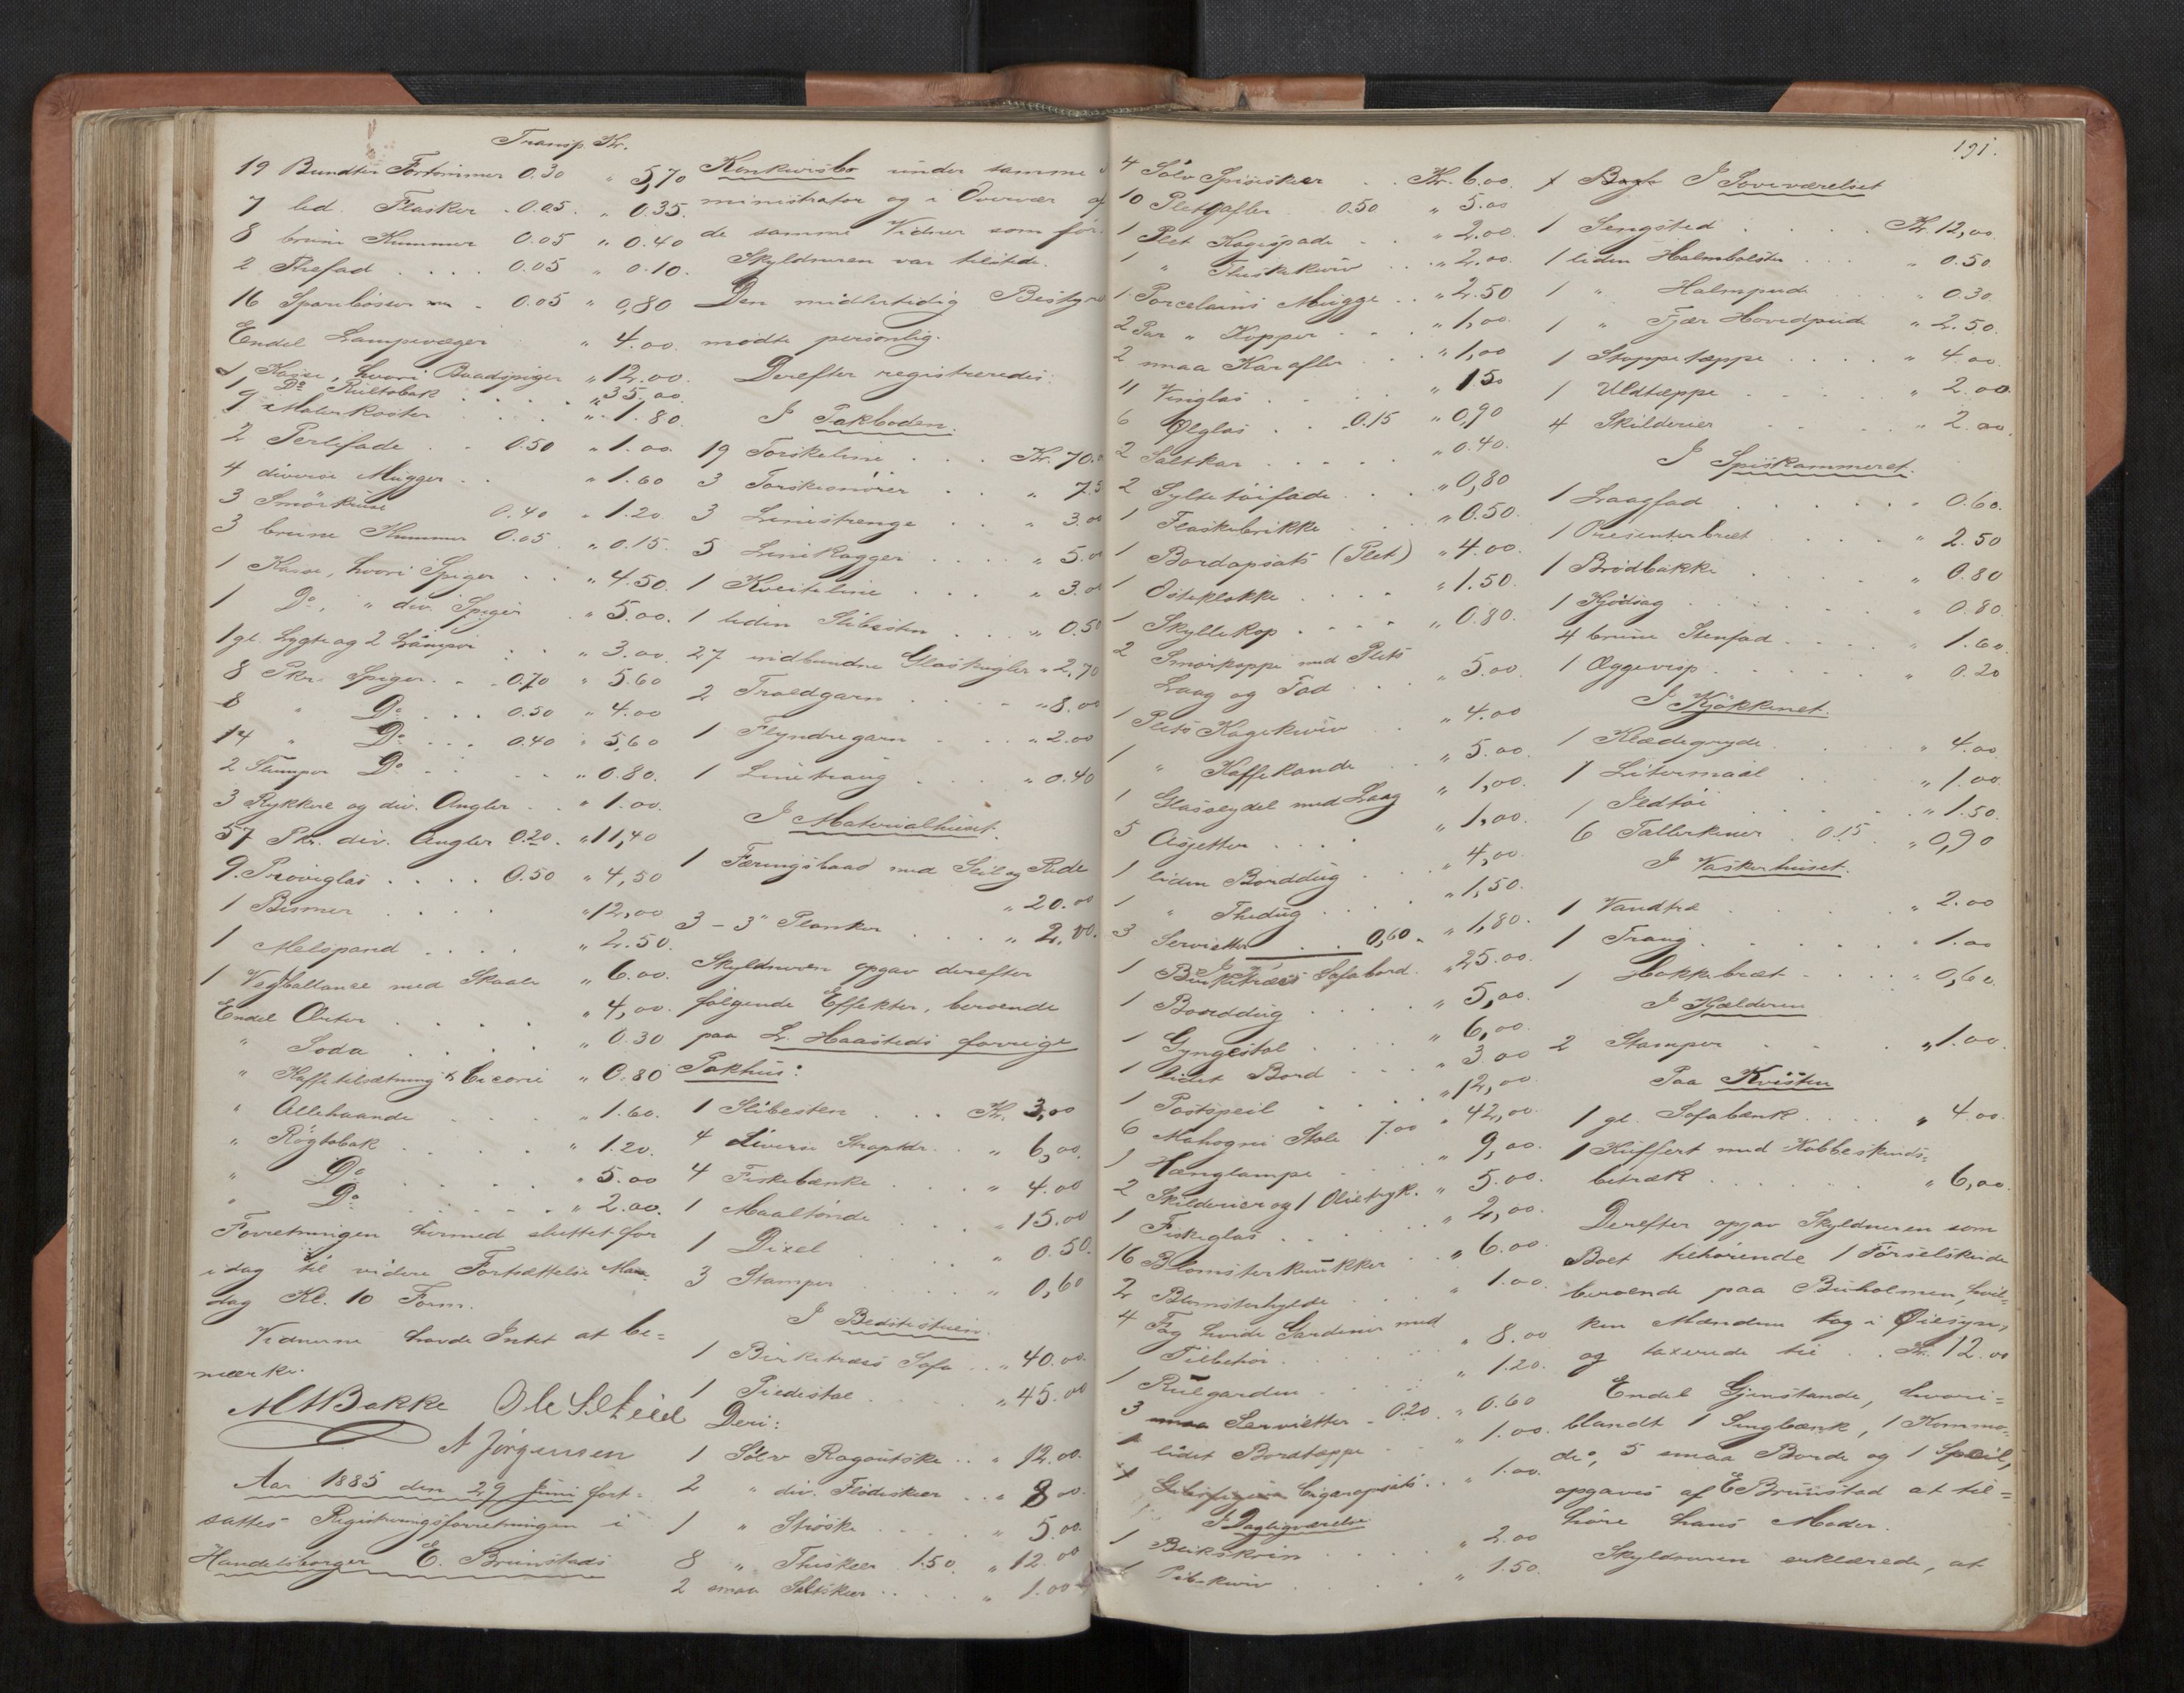 Transp Kr.
19 Bundter Fortömmer 0.30 " 5,70
7 led. Flasker . 0.05 . " 0.35.
8 brune Kummer 0.05 " 0.40
2 Thefad . . . . 0.05 " 0.10.
16 Sparebösser - 0.05 " 0,80
Endel Lampevæger " 4.00.
1 Kasse, hvori Baadspiger " 12.00.
1 Do Rultobak . . . . " 35,00.
9 Malerkoster . . . " 1.80.
2 Perlefade . . 0.50 " 1.00
4 diverse Mugger . . " 1.60
3 Smörkrus 0.40 " 1.20
3 brune Kummer 0.05 " 0.15.
1 Kasse, hvori Spiger . . " 4.50.
1 Do, " div. Spiger . " 5.00.
1 gl. Lygte og 2 Lamper . . " 3.00.
8 Pkr. Spiger . . 0.70 " 5.60
8 " Do . . . 0.50 " 4.00
14 " Do . . . 0.40 " 5,60
2 Slumper Do . . . " 0.80.
3 Rykkere og div. Angler . . " 1.00.
57 Pkr. div. Angler 0.20 . " 11,40
9. Pröveglas . . . . 0.50 " 4,50
1 Bismer . . . . " 12,00
1 Melspand . . . . " 2.50.
1 Vegballance med Skaale " 6.00.
Endel Erter . . . . " 4,00.
" Soda . . . . " 0.30
" Kaffetilsætning & Cicorie " 0.80
" Allehaande . . . " 1.60.
" Rögtobak . . . . " 1.20.
" Do . . . . . " 5.00
" Do . . . . . " 2.00.
Forretningen hermed sluttet for
idag til videre Fortsættelse Man-
dag Kl. 10 Form.
Vidnerne havde Intet at be=
mærke.
A Jörgensen
Aar 1885 den 29 Juni fort-
sattes Registreringsforretningen i
Handelsborger E. Brunstads
Konkursbo under samme
ministrator og i Overvær af
de samme Vidner som för.
Skyldneren var tilstede.
Den midlertidig Bestyre
mödte personlig.
Derefter registreredes:
I Pakboden.
19 Torskeline . . . Kr. 70.
3 Torskesnörer . . . " 7.5
3 Linestrenge . . . " 3.00
5 Linekagger . . . . " 5.0
1 Kveiteline . . . . " 3.00
1 liden Slibesten . . . " 0.50
27 indbundne Glaskugler " 2,70
2 Troldgarn . . . . " 8.00
1 Flyndregarn . . . . " 2.00
1 Linetraug . . . " 0.40
I Materialhuset.
1 Færingsbaad med Seil og Rede
" 20.00
3 - 3" Planker . . . " 2,00.
Skyldneren opgav derefter
fölgende Effekter, beroende
paa L. Haasteds forrige
Pakhus:
1 Slibesten . . . Kr. 3,00
4 diverse " 6,00.
4 Fiskebænke . . . " 4.00
1 Maaltönde . . . " 15.00
1 Dixel . . . . " 0.50.
3 Stamper . . . . " 0,60
I Bedstestuen.
1 Birketræes Sofa . . " 40.00.
1 Piedestal . . . . " 45.00
Deri:
1 Sölv Ragoutske . . " 12.00.
2 " div. Flödeskeer . . " 8 00.
1 " Ströske . . . . " 5.00.
8 " Theskeer 1.50. " 12.00
2 smaa Saltskeer . . . " 1.00
191.
4 Sölv Spiseskeer . . Kr. 6.00.
10 Pletgafler 0.50 " 5.00
1 Plet Kagespade . . " 2.00.
1 " . . . " 2.00.
1 Porcelains Mugge . . " 2.50
2 Par " Kopper . . . " 1,00.
2 smaa Karafler . . . " 1,00
11 Vinglas . . . . " 1 50
6 Ølglas . . . 0.15 " 0,90
2 Saltkar . . . . . " 0.40.
2 Syltetöifade . . . " 0,80
1 Flaskebrikke . . . " 0.50.
1 Bordopsats (Plet) " 4.00.
1 Osteklokke . . . . " 1.50.
1 Skyllekop . . . . " 0.80.
2 Smörkoppe med Plets
Laag og Fad . . . " 5.00.
1 Plets Kagekurv . . " 4.00
1 " Kaffekande . . " 5.00.
1 Glasseydel med Laag " 1,00.
5 Asjetter . . . . " 1,00.
1 liden Borddug . . . " 4,00.
1 " Thedug . . . . " 1,50.
3 Servietter . . . 0,60 . " 1,80.
1 Birketræes Sofabord . " 25.00.
1 Borddug . . . . " 5,00.
1 Gyngestol . . . . " 6,00.
1 lidet Bord . . . . " 3.00
1 Postspeil . . . . " 12,00.
6 Mahogni Stole 7.00 " 42,00.
1 Hænglampe . . . " 9,00.
2 Skilderier og 1 Olietryk. " 5.00.
1 Fiskeglas . . . . . " 2,00.
16 Blomsterkrukker . . " 6.00.
2 Blomsterhylde . . . " 1.00.
4 Fag hvide Gardiner med
Tilbehör . . . . . " 8.00
1 Rulgardin . . . . " 1.20.
3 smaa Servietter . 0.20 . " 0.60
1 lidet Bordtæppe . . " 1.00.
1 Cigaropsats . . " 1.00.
I Dagligværelse
1 Blikskrin . . . . " 2.00
1 . . . . . " 1.50.
I Soveværelset
1 Sengsted . . . . . Kr. 12,00.
1 liden Halmbolster . . . " 0.50
1 " Halmpude . . . " 0.30.
1 " Fjær Hovedpude " 2.50.
1 Stoppetæppe . . . . " 4 00.
1 Uldtæppe . . . . . " 2.00.
4 Skilderier . . . . " 2.00.
I Spiskammeret.
1 Laagfad . . . . . . " 0.60.
1 Presenterbret . . . . " 2.50
1 Brödbakke . . . . . " 0.80
1 Kjödsag . . . . . . " 0.80.
4 brune Stenfad . . . . " 1.60.
1 Æggevisp . . . . . " 0.20
I Kjökkenet.
1 Klædegryde . . . . . " 4.00.
1 Litermaal . . . . " 1.00.
1 Ildtöi . . . . . " 1.50.
6 Tallerkener . 0.15 . " 0,90
I Vaskerhuset.
1 Vandtræ . . . . . " 2.00
1 Traug . . . . . . " 1.00
1 Hakkebræt . . . . " 0,60.
I Kjælderen
2 Stamper . . . . . " 1.00.
Paa Kvisten
1 gl. Sofabænk . . . . " 4 00.
1 Kuffert med Kobbeskinds=
betræk . . . . . . " 6,00.
Derefter opgav Skyldneren som
Boet tilhörende 1
beroende paa Buholmen, hvil=
ken Mændene tog i Øiesyn,
og taxerede til . . Kr. 12.00
Endel Gjenstande, hvori=
blandt 1 Sengbænk, 1 Kommo=
de, 5 smaa Borde og 1 Speil,
opgaves af E Brunstad at til=
höre hans Moder.
Skyldneren erklærede, at